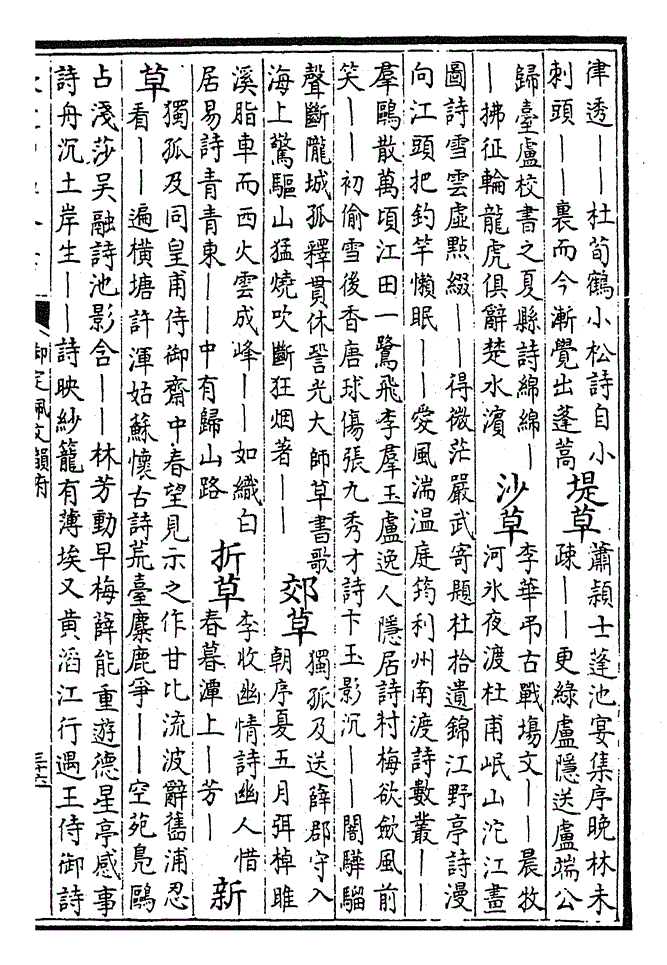 律透——杜荀鶴小松詩自小
刺頭——裏而今漸覺出蓬蒿
堤草
蕭潁士蓬池宴集序晚林未
疎——更綠盧隱送盧端公
歸臺盧校書之夏縣詩綿綿—
—拂征輪龍虎俱辭楚水濱
沙草
李華弔古戰場文——晨牧
河氷夜渡杜甫岷山沱江畫
圖詩雪雲虛點綴——得微茫嚴武寄題杜拾遺錦江野亭詩漫
向江頭把釣竿懶眠——愛風湍温庭筠利州南渡詩數叢——
羣鷗散萬頃江田一鷺飛李羣玉盧逸人隱居詩村梅欲歛風前
笑——初偷雪後香唐球傷張九秀才詩卞玉影沉——闇驊騮
聲斷隴城孤釋貫休䛒光大師草書歌
海上驚驅山猛燒吹斷狂烟著——
郊草
獨孤及送薛郡守入
朝序夏五月弭棹雎
溪脂車而西火雲成峰——如織白
居易詩青青東——中有歸山路
折草
李收幽情詩幽人惜
春暮潭上—芳—
新
草
獨孤及同皇甫侍御齋中春望見示之作甘比流波辭舊浦忍
看——遍橫塘許渾姑蘇懷古詩荒臺麋鹿爭——空苑鳧鷗
占淺莎吳融詩池影含——林芳動早梅薛能重遊德星亭感事
詩舟沉土岸生——詩映紗籠有薄埃又黃滔江行遇王侍御詩
御定佩文韻府